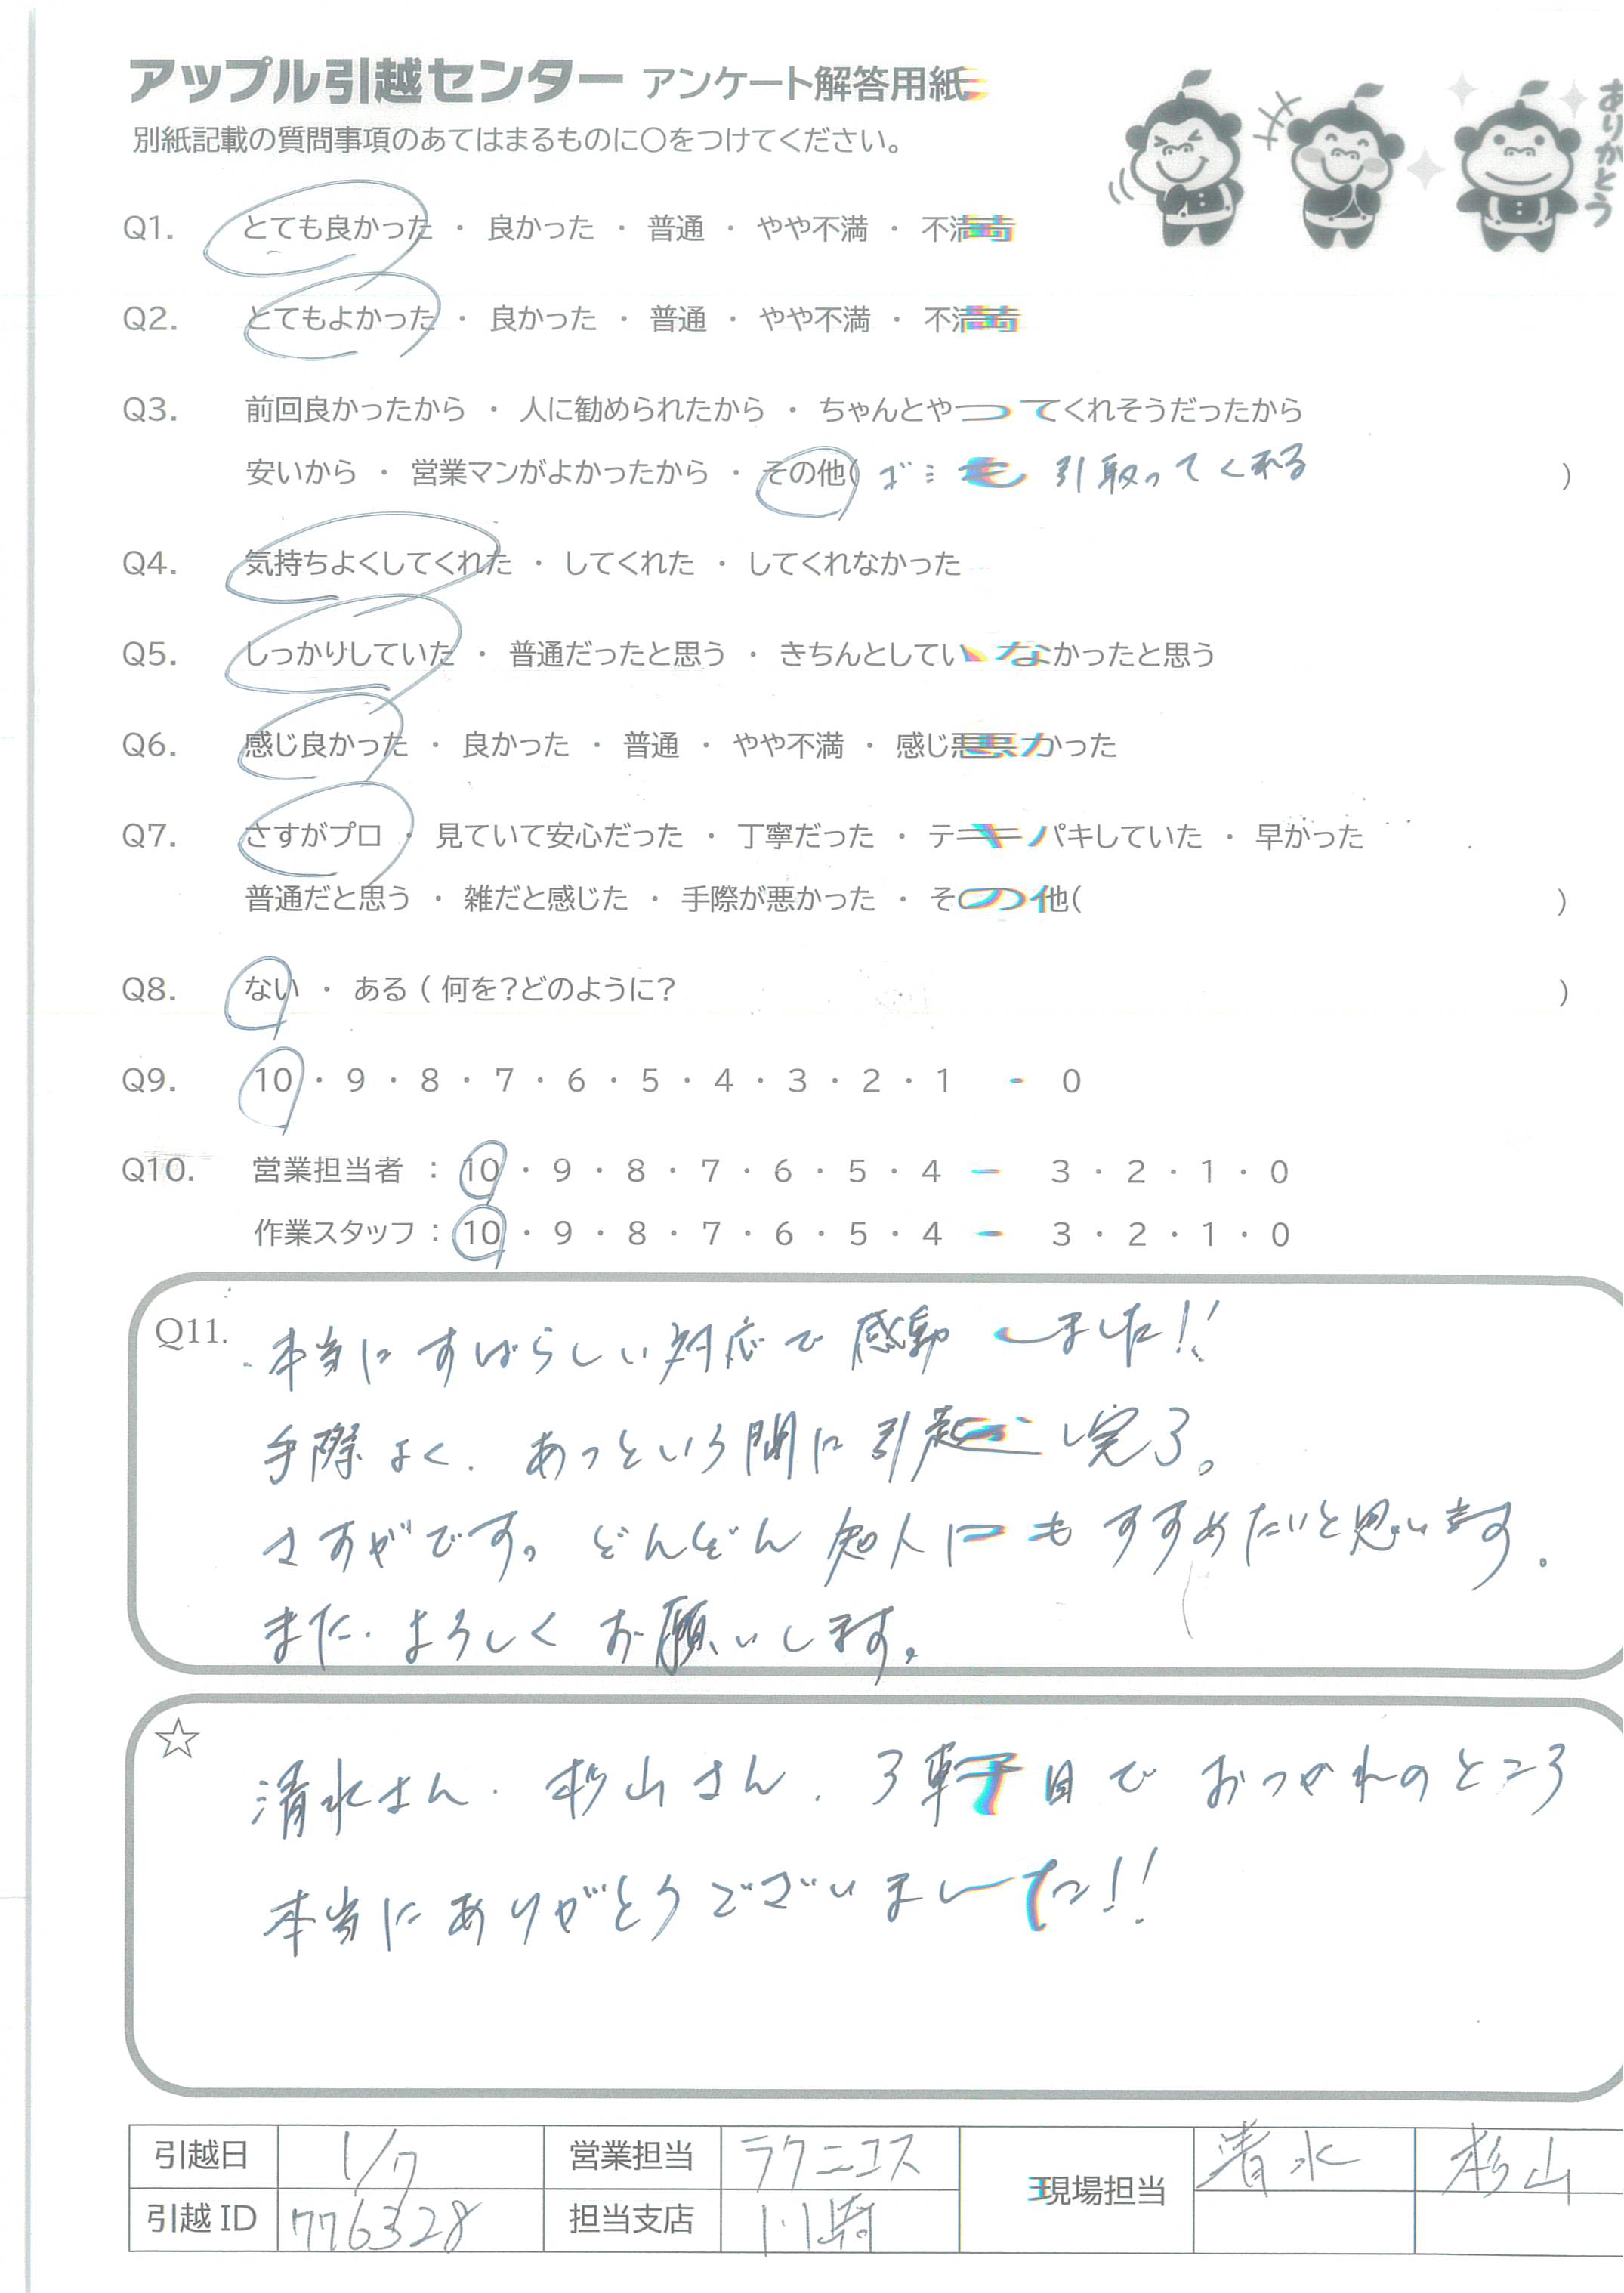 アップル引越センター アンケート解答用紙
別紙記載の質問事項のあてはまるものに○をつけてください。
ありがとう
Q1. とても良かった ・ 良かった ・ 普通 ・ やや不満 ・ 不満
Q2. とてもよかった ・ 良かった ・ 普通 ・ やや不満 ・ 不満
Q3. 前回良かったから ・ 人に勧められたから ・ ちゃんとやってくれそうだったから
安いから ・ 営業マンがよかったから ・ その他( ゴミも引取ってくれる )
Q4. 気持ちよくしてくれた ・ してくれた ・ してくれなかった
Q5. しっかりしていた ・ 普通だったと思う ・ きちんとしていなかったと思う
Q6. 感じ良かった ・ 良かった ・ 普通 ・ やや不満 ・ 感じ悪かった
Q7. さすがプロ ・ 見ていて安心だった ・ 丁寧だった ・ テキパキしていた ・ 早かった
普通だと思う ・ 雑だと感じた ・ 手際が悪かった ・ その他( )
Q8. ない ・ ある ( 何を？どのように？ )
Q9. 10 ・ 9 ・ 8 ・ 7 ・ 6 ・ 5 ・ 4 ・ 3 ・ 2 ・ 1 ・ 0
Q10. 営業担当者 : 10 ・ 9 ・ 8 ・ 7 ・ 6 ・ 5 ・ 4 ・ 3 ・ 2 ・ 1 ・ 0
作業スタッフ : 10 ・ 9 ・ 8 ・ 7 ・ 6 ・ 5 ・ 4 ・ 3 ・ 2 ・ 1 ・ 0
Q11. 本当にすばらしい対応で感動しました!!
手際よく、あっという間に引越し完了。
さすがです。どんどん知人にもすすめたいと思います.
また、よろしくお願いします。
☆ 清水さん、杉山さん、3軒目でおつかれのところ
本当にありがとうございました!!
引越日 1/7 営業担当 ラクニコス 現場担当 清水 杉山
引越ID 776328 担当支店 川崎